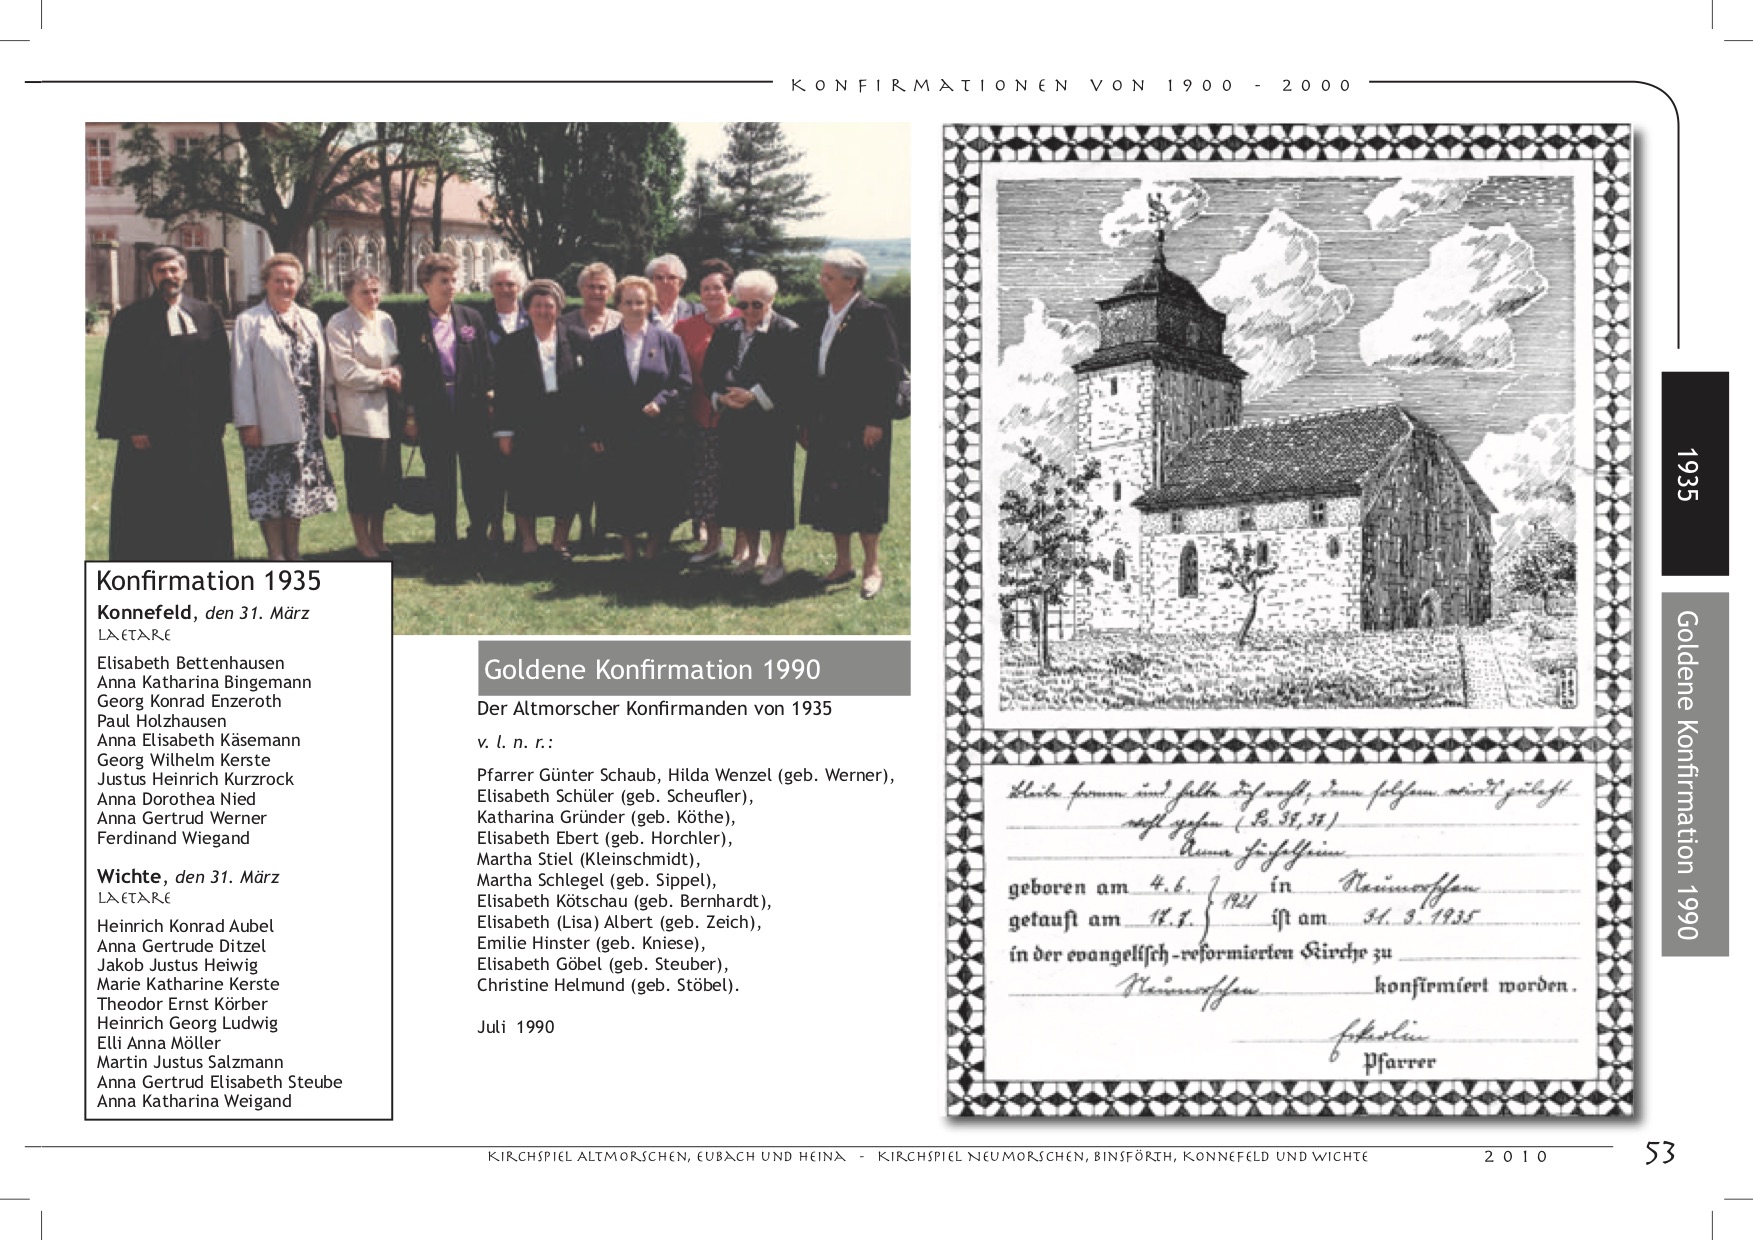 Konfirmationen von 1900 - 2000
Konfirmation 1935
Konnefeld, den 31. März
Laetare
Elisabeth Bettenhausen
Anna Katharina Bingemann
Georg Konrad Enzeroth
Paul Holzhausen
Anna Elisabeth Käsemann
Georg Wilhelm Kerste
Justus Heinrich Kurzrock
Anna Dorothea Nied
Anna Gertrud Werner
Ferdinand Wiegand
Wichte, den 31. März
Laetare
Heinrich Konrad Aubel
Anna Gertrude Ditzel
Jakob Justus Heiwig
Marie Katharine Kerste
Theodor Ernst Körber
Heinrich Georg Ludwig
Elli Anna Möller
Martin Justus Salzmann
Anna Gertrud Elisabeth Steube
Anna Katharina Weigand
Goldene Konfirmation 1990
Der Altmorscher Konfirmanden von 1935
v. l. n. r.:
Pfarrer Günter Schaub, Hilda Wenzel (geb. Werner),
Elisabeth Schüler (geb. Scheufler),
Katharina Gründer (geb. Köthe),
Elisabeth Ebert (geb. Horchler),
Martha Stiel (Kleinschmidt),
Martha Schlegel (geb. Sippel),
Elisabeth Kötschau (geb. Bernhardt),
Elisabeth (Lisa) Albert (geb. Zeich),
Emilie Hinster (geb. Kniese),
Elisabeth Göbel (geb. Steuber),
Christine Helmund (geb. Stöbel).
Juli 1990
Bleibe fromm und halte dich recht, denn solchem wird's zuletzt
wohl gehen (Ps. 37,37)
Anna
geboren am 4.6. 1921 in Neumorschen
getauft am 17.7. ist am 31.3.1935
in der evangelisch-reformierten Kirche zu
Neumorschen konfirmiert worden.
Pfarrer
1935
Goldene Konfirmation 1990
Kirchspiel Altmorschen, Eubach und Heina - Kirchspiel Neumorschen, Binsförth, Konnefeld und Wichte
2010
53